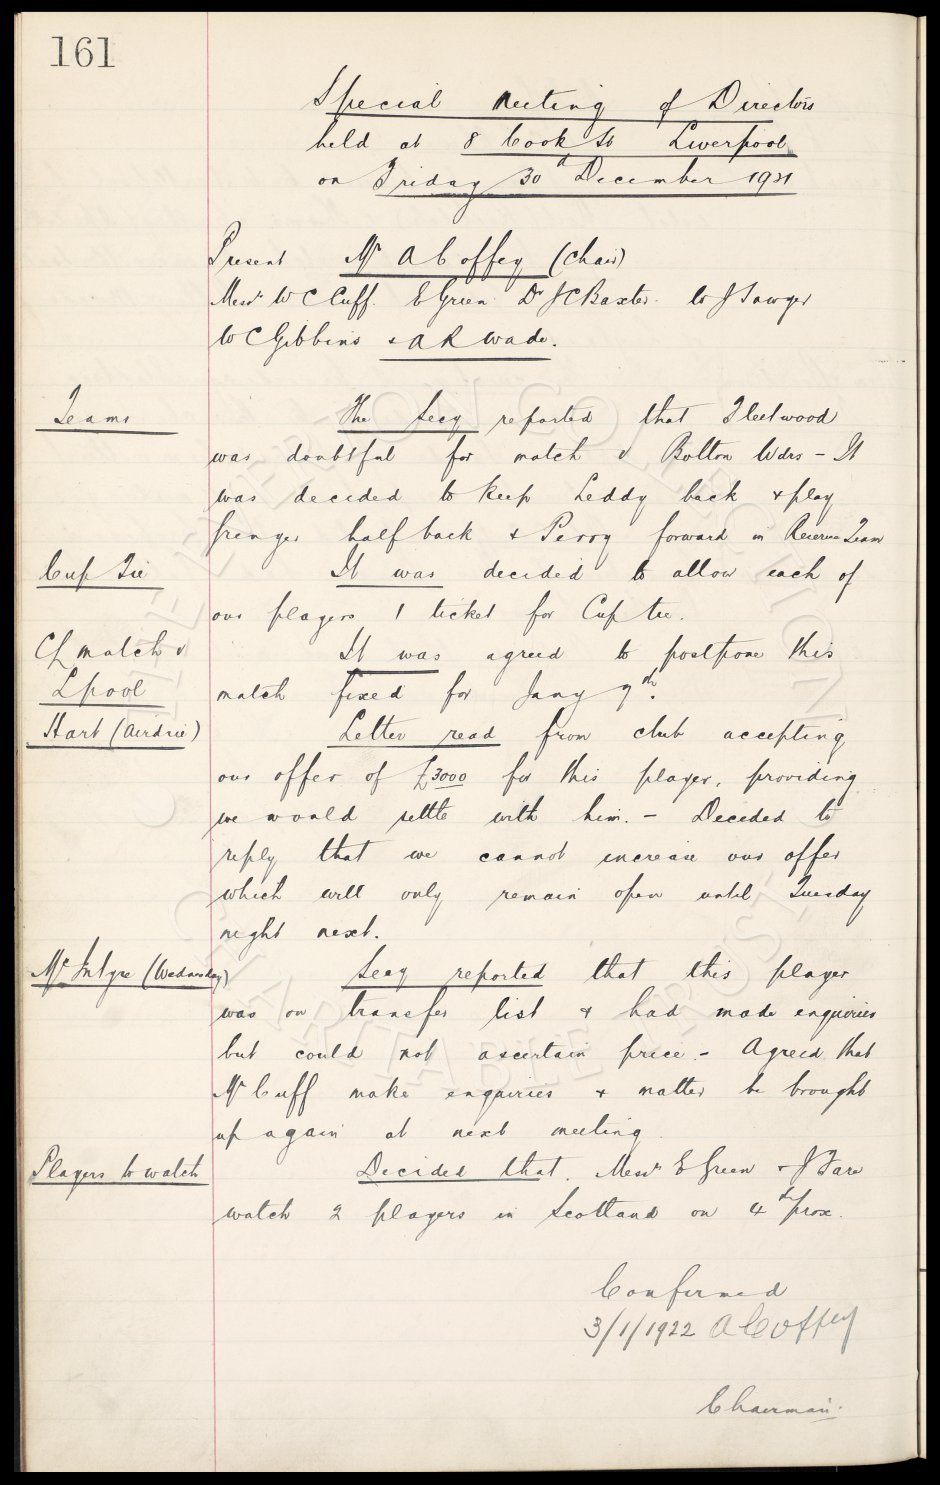 161
Special Meeting of Directors
held at 8 Cook St Liverpool
on Friday 30th December 1921
Present Mr A Coffey (Chair)
Messrs W C Cuff. E Green Dr J C Baxter. W J Sawyer
W C Gibbins & A R Wade.
Teams
The Secy reported that Fleetwood
was doubtful for match v Bolton Wdrs - It
was decided to keep Leddy back & play
Grenyer half back & Perry forward in Reserve Team
Cup Tie
It was decided to allow each of
our players 1 ticket for Cup tie.
CL match v
Lpool
It was agreed to postpone this
match fixed for Jany 7th.
Hart (Airdrie)
Letter read from club accepting
our offer of £3000 for this player, providing
we would settle with him. - Decided to
reply that we cannot increase our offer
which will only remain open until Tuesday
night next.
McIntyre (Wednesday)
Secy reported that this player
was on transfer list & had made enquiries
but could not ascertain price. - Agreed that
Mr Cuff make enquiries & matter be brought
up again at next meeting
Players to watch
Decided that Messrs E Green & J Fare
watch 2 players in Scotland on 4th prox.
Confirmed
3/1/1922 A Coffey
Chairman.
THE EVERTON COLLECTION
CHARITABLE TRUST